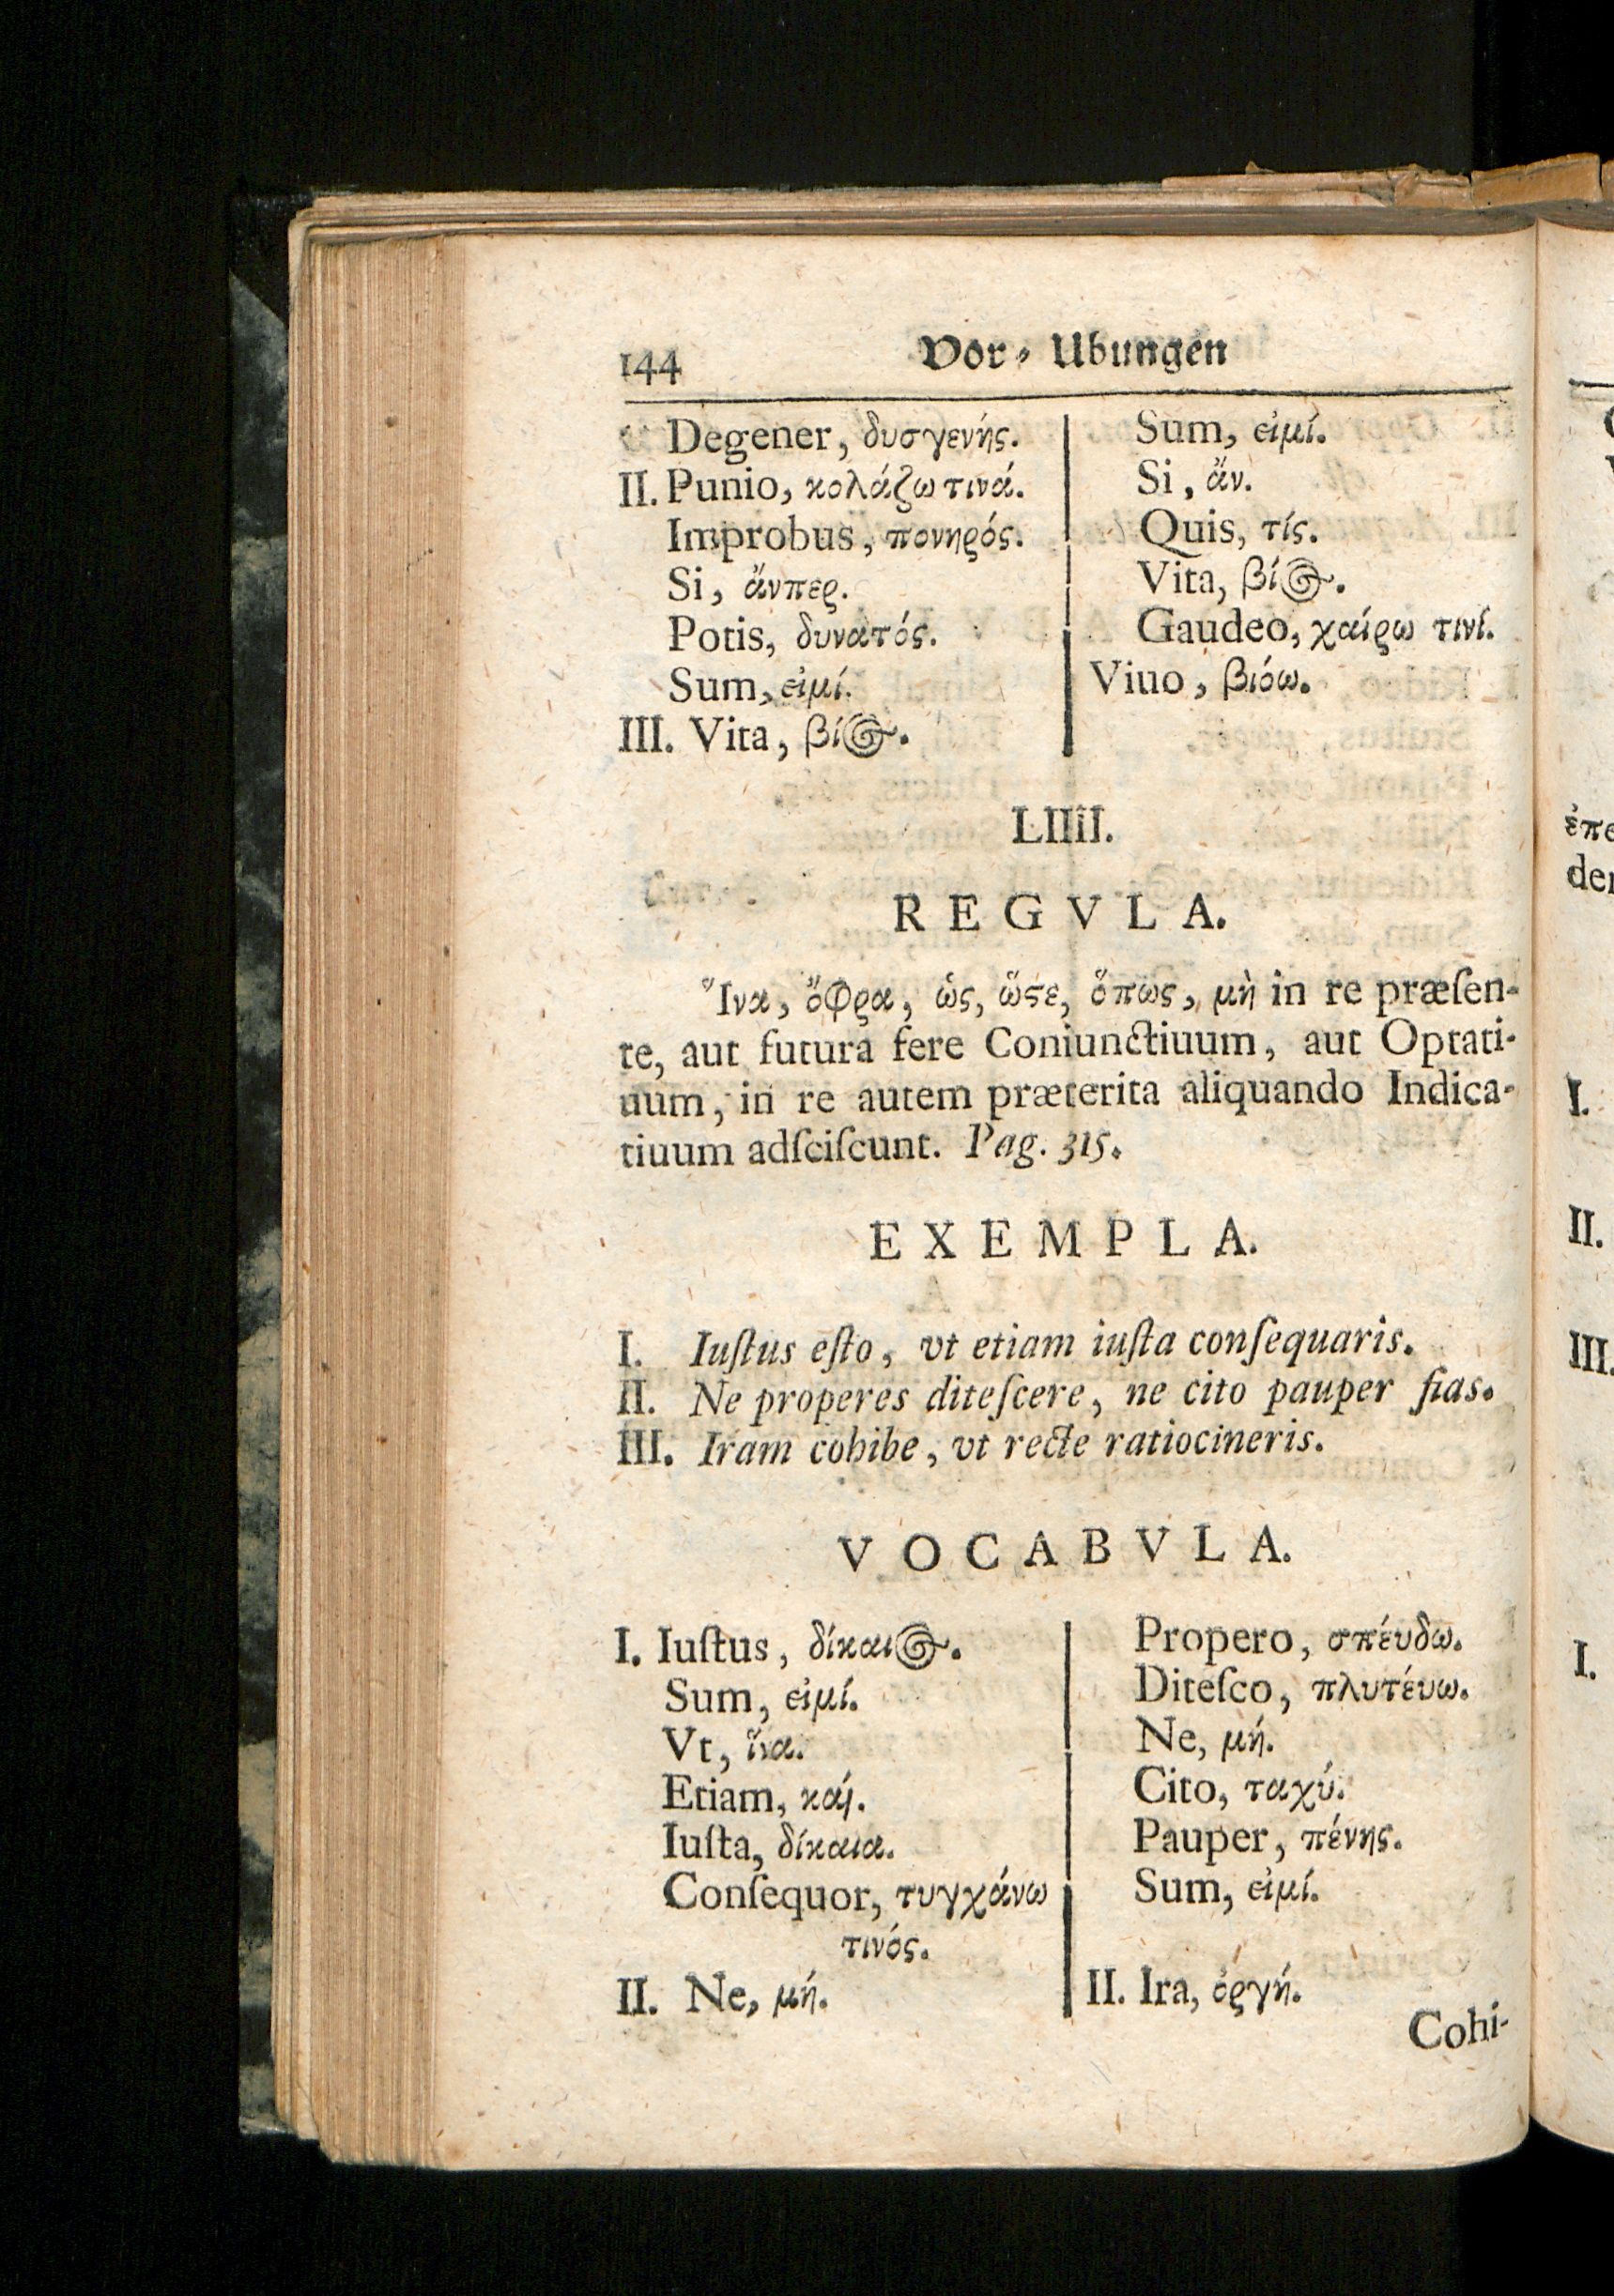 144 Vor-Ubungen
Degener, δυσγενής.
II. Punio, κολάζω τινά.
Improbus, πονηρός.
Si, ἄνπερ.
Potis, δυνατός.
Sum, εἰμί.
III. Vita, βίος.
Sum, εἰμί.
Si, ἄν.
Quis, τίς.
Vita, βίος.
Gaudeo, χαίρω τινί.
Viuo, βιόω.
LIIII.
REGVLA.
Ἵνα, ὄφρα, ὡς, ὥϛε, ὅπως, μὴ in re præſen-
te, aut futura fere Coniunctiuum, aut Optati-
uum, in re autem præterita aliquando Indica-
tiuum adſciſcunt. Pag. 315.
EXEMPLA.
I. Iuſtus eſto, vt etiam iuſta conſequaris.
II. Ne properes diteſcere, ne cito pauper fias.
III. Iram cohibe, vt recte ratiocineris.
VOCABVLA.
I. Iuſtus, δίκαιος.
Sum, εἰμί.
Vt, ἵνα.
Etiam, καί.
Iuſta, δίκαια.
Conſequor, τυγχάνω
τινός.
II. Ne, μή.
Propero, σπέυδω.
Diteſco, πλυτέυω.
Ne, μή.
Cito, ταχύ.
Pauper, πένης.
Sum, εἰμί.
II. Ira, ὀργή.
Cohi-
ἐπε
der
I.
II.
III.
I.